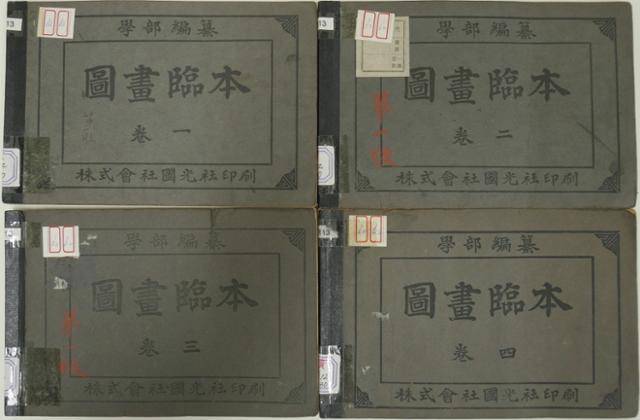 學部編纂
圖畫臨本
卷一
株式會社國光社印刷
學部編纂
圖畫臨本
卷二
株式會社國光社印刷
學部編纂
圖畫臨本
卷三
株式會社國光社印刷
學部編纂
圖畫臨本
卷四
株式會社國光社印刷